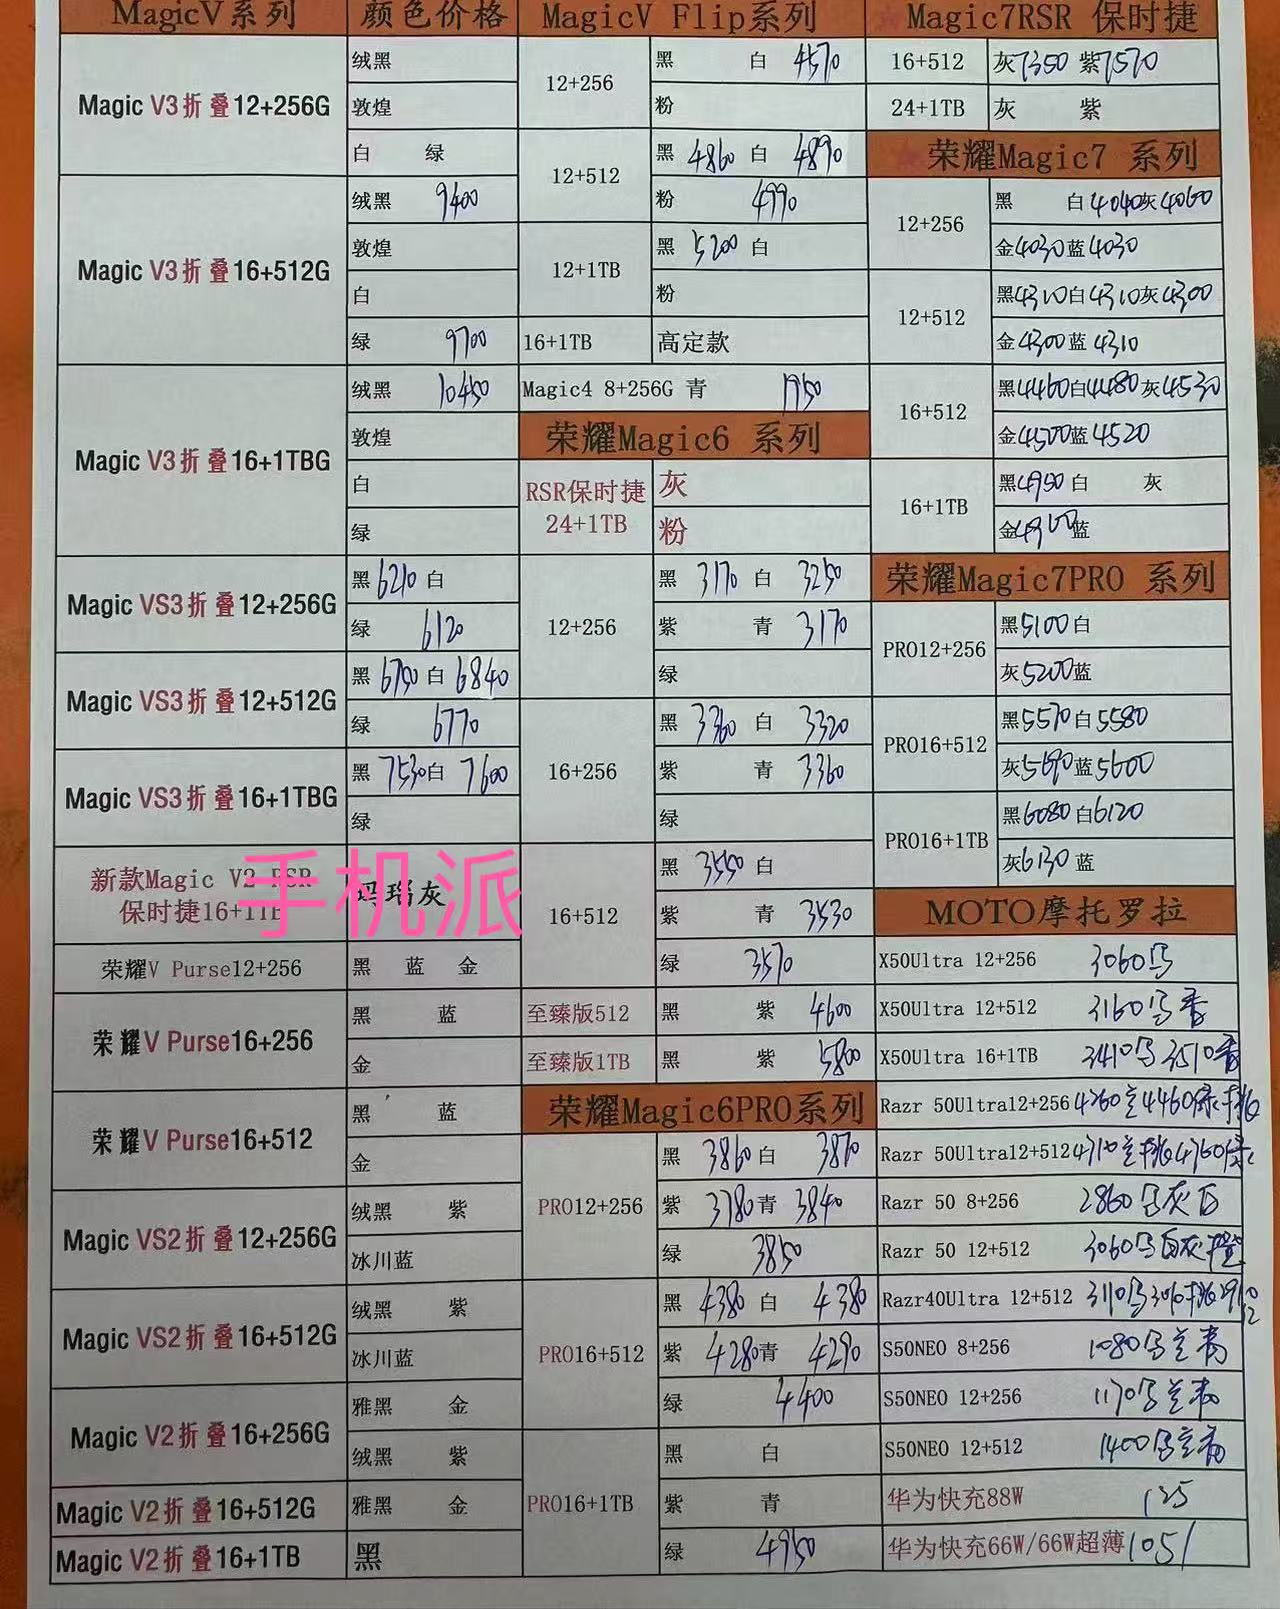 MagicV系列 颜色价格
Magic V3折叠12+256G
绒黑
敦煌
白 绿
Magic V3折叠16+512G
绒黑 9400
敦煌
白
绿 9700
Magic V3折叠16+1TBG
绒黑 10450
敦煌
白
绿
Magic VS3折叠12+256G
黑 6210 白
绿 6120
Magic VS3折叠12+512G
黑 6750 白 6840
绿 6770
Magic VS3折叠16+1TBG
黑 7530 白 7600
绿
新款Magic V2 RSR
保时捷16+1TB
玛瑙灰
手机派
荣耀V Purse12+256 黑 蓝 金
荣耀V Purse16+256
黑 蓝
金
荣耀V Purse16+512
黑 蓝
金
Magic VS2折叠12+256G
绒黑 紫
冰川蓝
Magic VS2折叠16+512G
绒黑 紫
冰川蓝
Magic V2折叠16+256G
雅黑 金
绒黑 紫
Magic V2折叠16+512G 雅黑 金
Magic V2折叠16+1TB 黑
MagicV Flip系列
12+256
黑 白 4570
粉
12+512
黑 4860 白 4890
粉 4990
12+1TB
黑 5200 白
粉
16+1TB 高定款
Magic4 8+256G 青 1950
荣耀Magic6 系列
RSR保时捷
24+1TB
灰
粉
12+256
黑 3170 白 3250
紫 青 3170
绿
16+256
黑 3360 白 3320
紫 青 3360
绿
16+512
黑 3550 白
紫 青 3530
绿 3570
至臻版512 黑 紫 4600
至臻版1TB 黑 紫 5800
荣耀Magic6PRO系列
PRO12+256
黑 3860 白 3870
紫 3780 青 3840
绿 3850
PRO16+512
黑 4380 白 4380
紫 4280 青 4290
绿 4400
PRO16+1TB
黑 白
紫 青
绿 4950
Magic7RSR 保时捷
16+512 灰7350 紫7570
24+1TB 灰 紫
荣耀Magic7 系列
12+256
黑 白4040灰4060
金4030蓝4030
12+512
黑4310白4310灰4300
金4300蓝4310
16+512
黑4460白4480灰4530
金4500蓝4520
16+1TB
黑4950白 灰
金4900蓝
荣耀Magic7PRO 系列
PRO12+256
黑5100白
灰5200蓝
PRO16+512
黑5570白5580
灰5690蓝5600
PRO16+1TB
黑6080白6120
灰6130蓝
MOTO摩托罗拉
X50Ultra 12+256 3060
X50Ultra 12+512 3160
X50Ultra 16+1TB 3410 3510
Razr 50Ultra12+256 4260 4460
Razr 50Ultra12+512 4710 4760
Razr 50 8+256 2860
Razr 50 12+512 3060
Razr40Ultra 12+512 3110
S50NEO 8+256 1080
S50NEO 12+256 1170
S50NEO 12+512 1400
华为快充88W 125
华为快充66W/66W超薄 105/